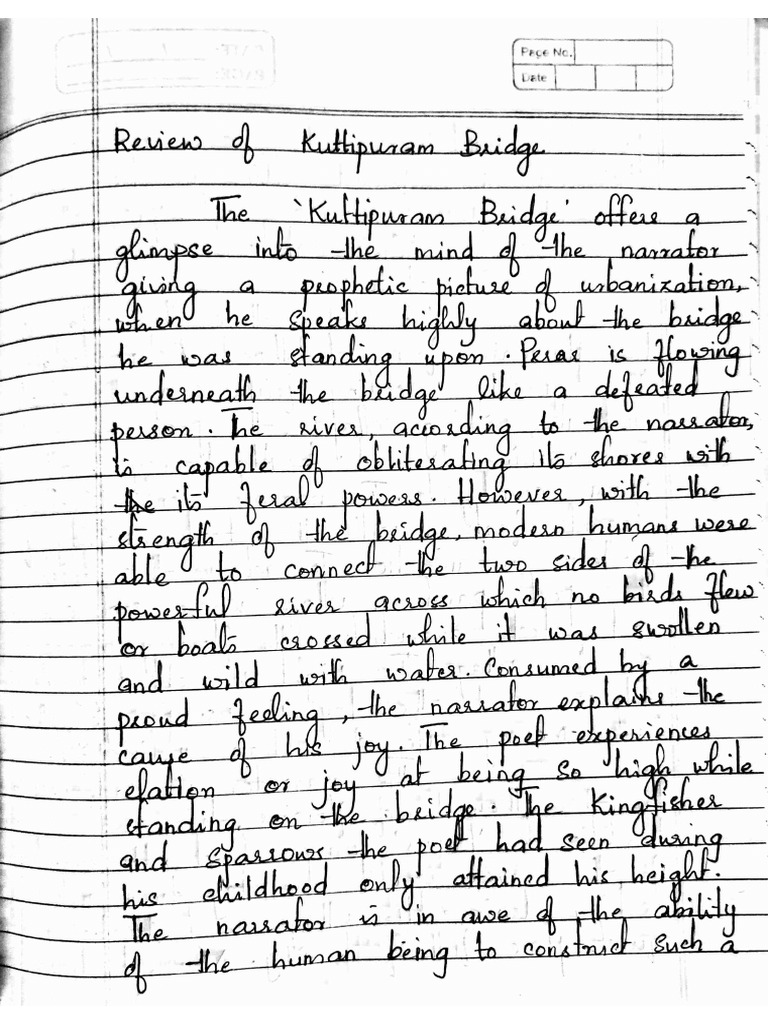 Page No.
Date
Review of Kuttipuram Bridge
The 'Kuttipuram Bridge' offers a
glimpse into the mind of the narrator
giving a prophetic picture of urbanization,
when he speaks highly about the bridge
he was standing upon. Perar is flowing
underneath the bridge like a defeated
person. The river, according to the narrator,
is capable of obliterating its shores with
the its feral powers. However, with the
strength of the bridge, modern humans were
able to connect the two sides of the
powerful river across which no birds flew
or boats crossed while it was swollen
and wild with water. Consumed by a
proud feeling, the narrator explains the
cause of his joy. The poet experiences
elation or joy at being so high while
standing on the bridge. The Kingfisher
and sparrows the poet had seen during
his childhood only attained his height.
The narrator is in awe of the ability
of the human being to construct such a